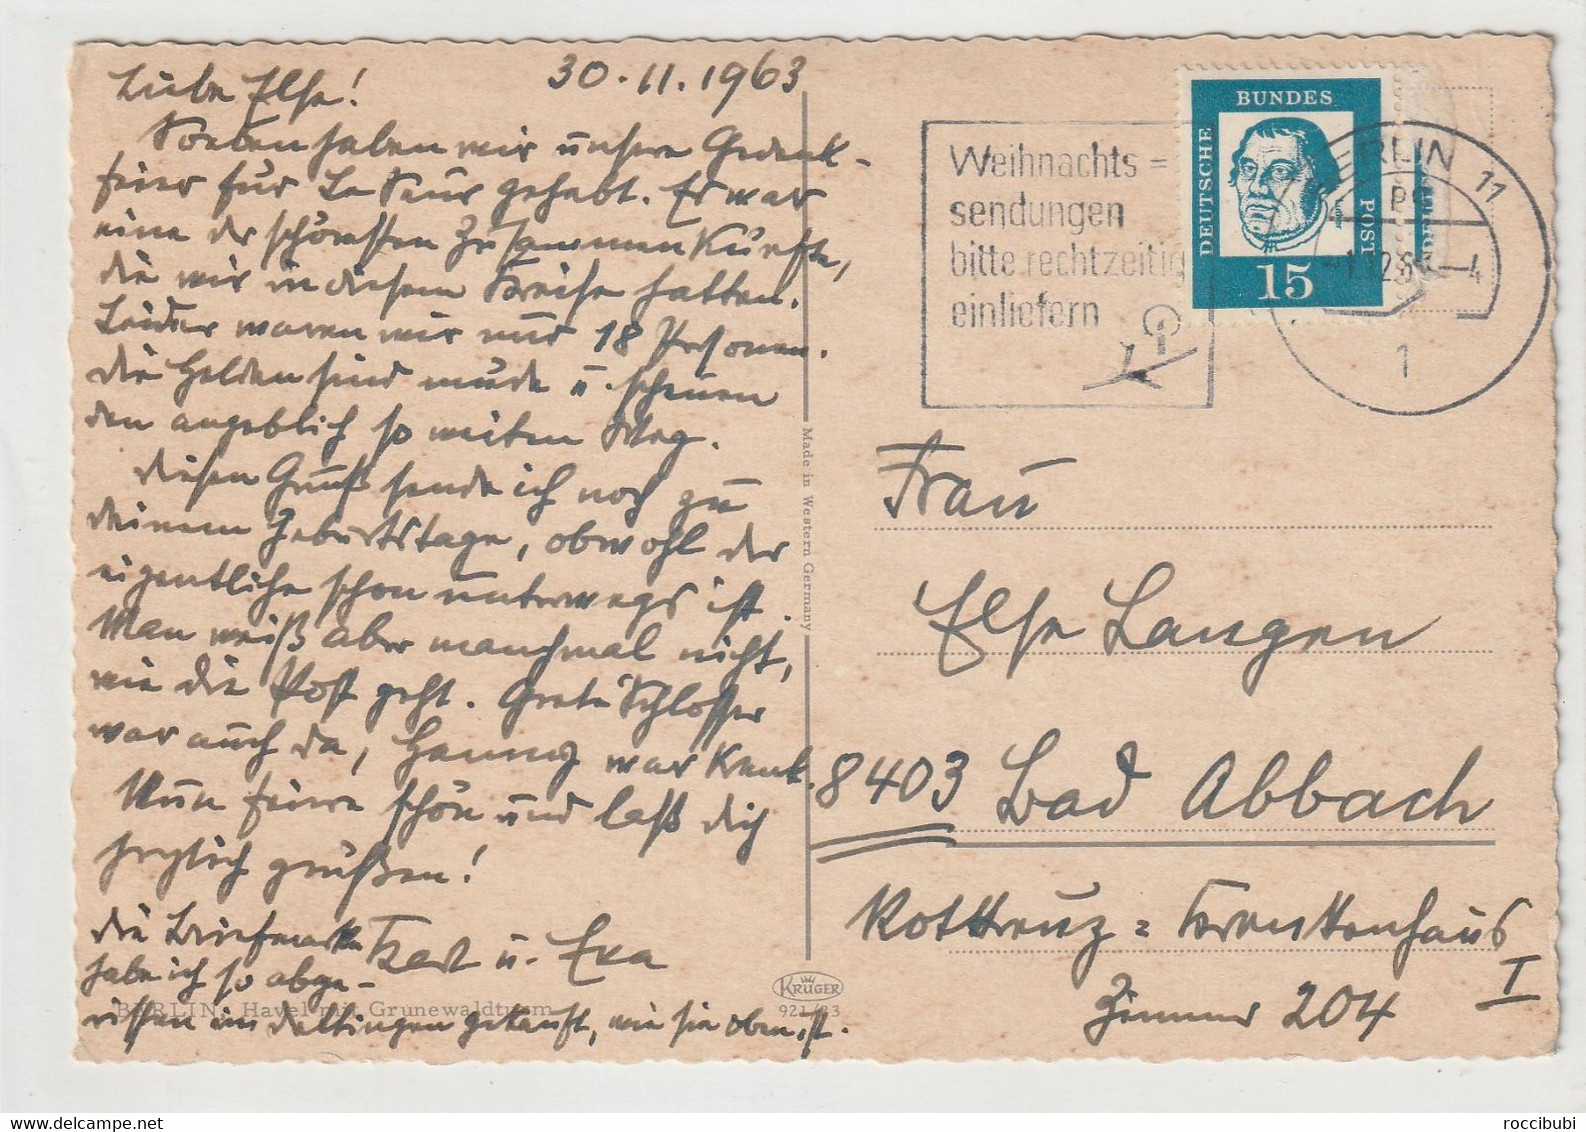 30.11.1963
Liebe Else!
Soeben haben wir unsere Gedenk-
feier für Le gehabt. Es war
eine der schönsten Zusammenkünfte,
die wir in diesem Kreise hatten.
Leider waren wir nur 18 Personen.
Die Helden sind müde u. scheuen
den angeblich so weiten Weg.
Diesen Gruß sende ich noch zu
deinem Geburtstage, obwohl der
eigentliche schon unterwegs ist.
Man weiß aber manchmal nicht,
wie die Post geht. Grete Schlosser
war auch da, war krank.
Nun feiere schön und laß dich
herzlich grüßen!
Karl u. Eva
Die Briefmarke
habe ich so abge-
rissen in gekauft, wie sie oben ist.
BERLIN, Havel mit Grunewaldturm
Made in Western Germany
KRÜGER
921/
Weihnachts=
sendungen
bitte rechtzeitig
einliefern
DEUTSCHE
BUNDES
POST
15
BERLIN 11
1
Frau
Else Langen
8403 Bad Abbach
Rotkreuz=Krankenhaus
I
Zimmer 204
roccibubi